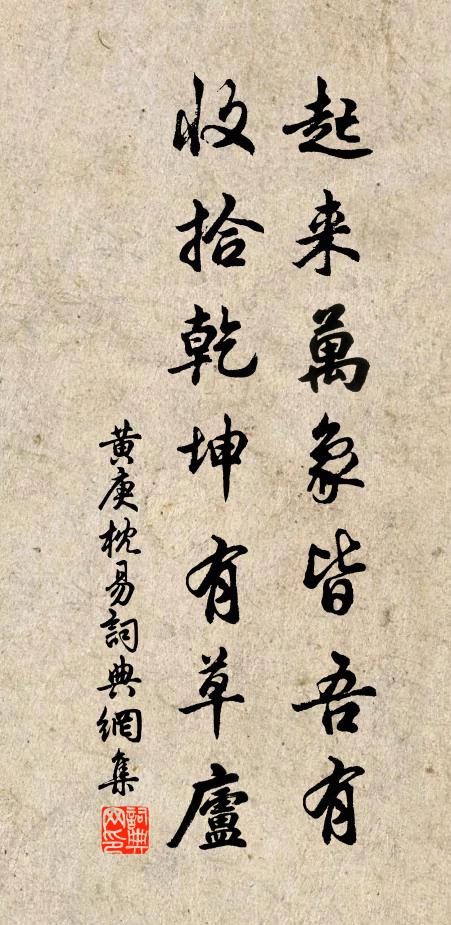 起来萬象皆吾有
收拾乾坤有草廬
黃庚枕易詞典網集
詞典網印